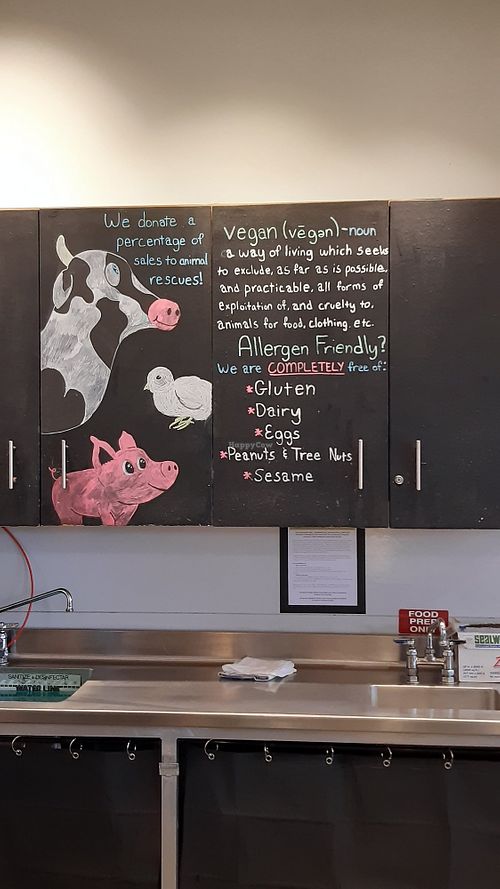 We donate a
percentage of
sales to animal
rescues!
vegan (vēgən)-noun
a way of living which seeks
to exclude, as far as is possible,
and practicable, all forms of
exploitation of, and cruelty to,
animals for food, clothing, etc.
Allergen Friendly?
We are COMPLETELY free of:
*Gluten
*Dairy
*Eggs
*Peanuts & Tree Nuts
*Sesame
HappyCow
FOOD
PREP
ONLY
SANITIZE & DISINFECTANT
WATER LINE